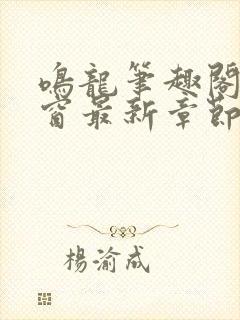 鳴龍筆趣閣
窗最新章節
楊渝成